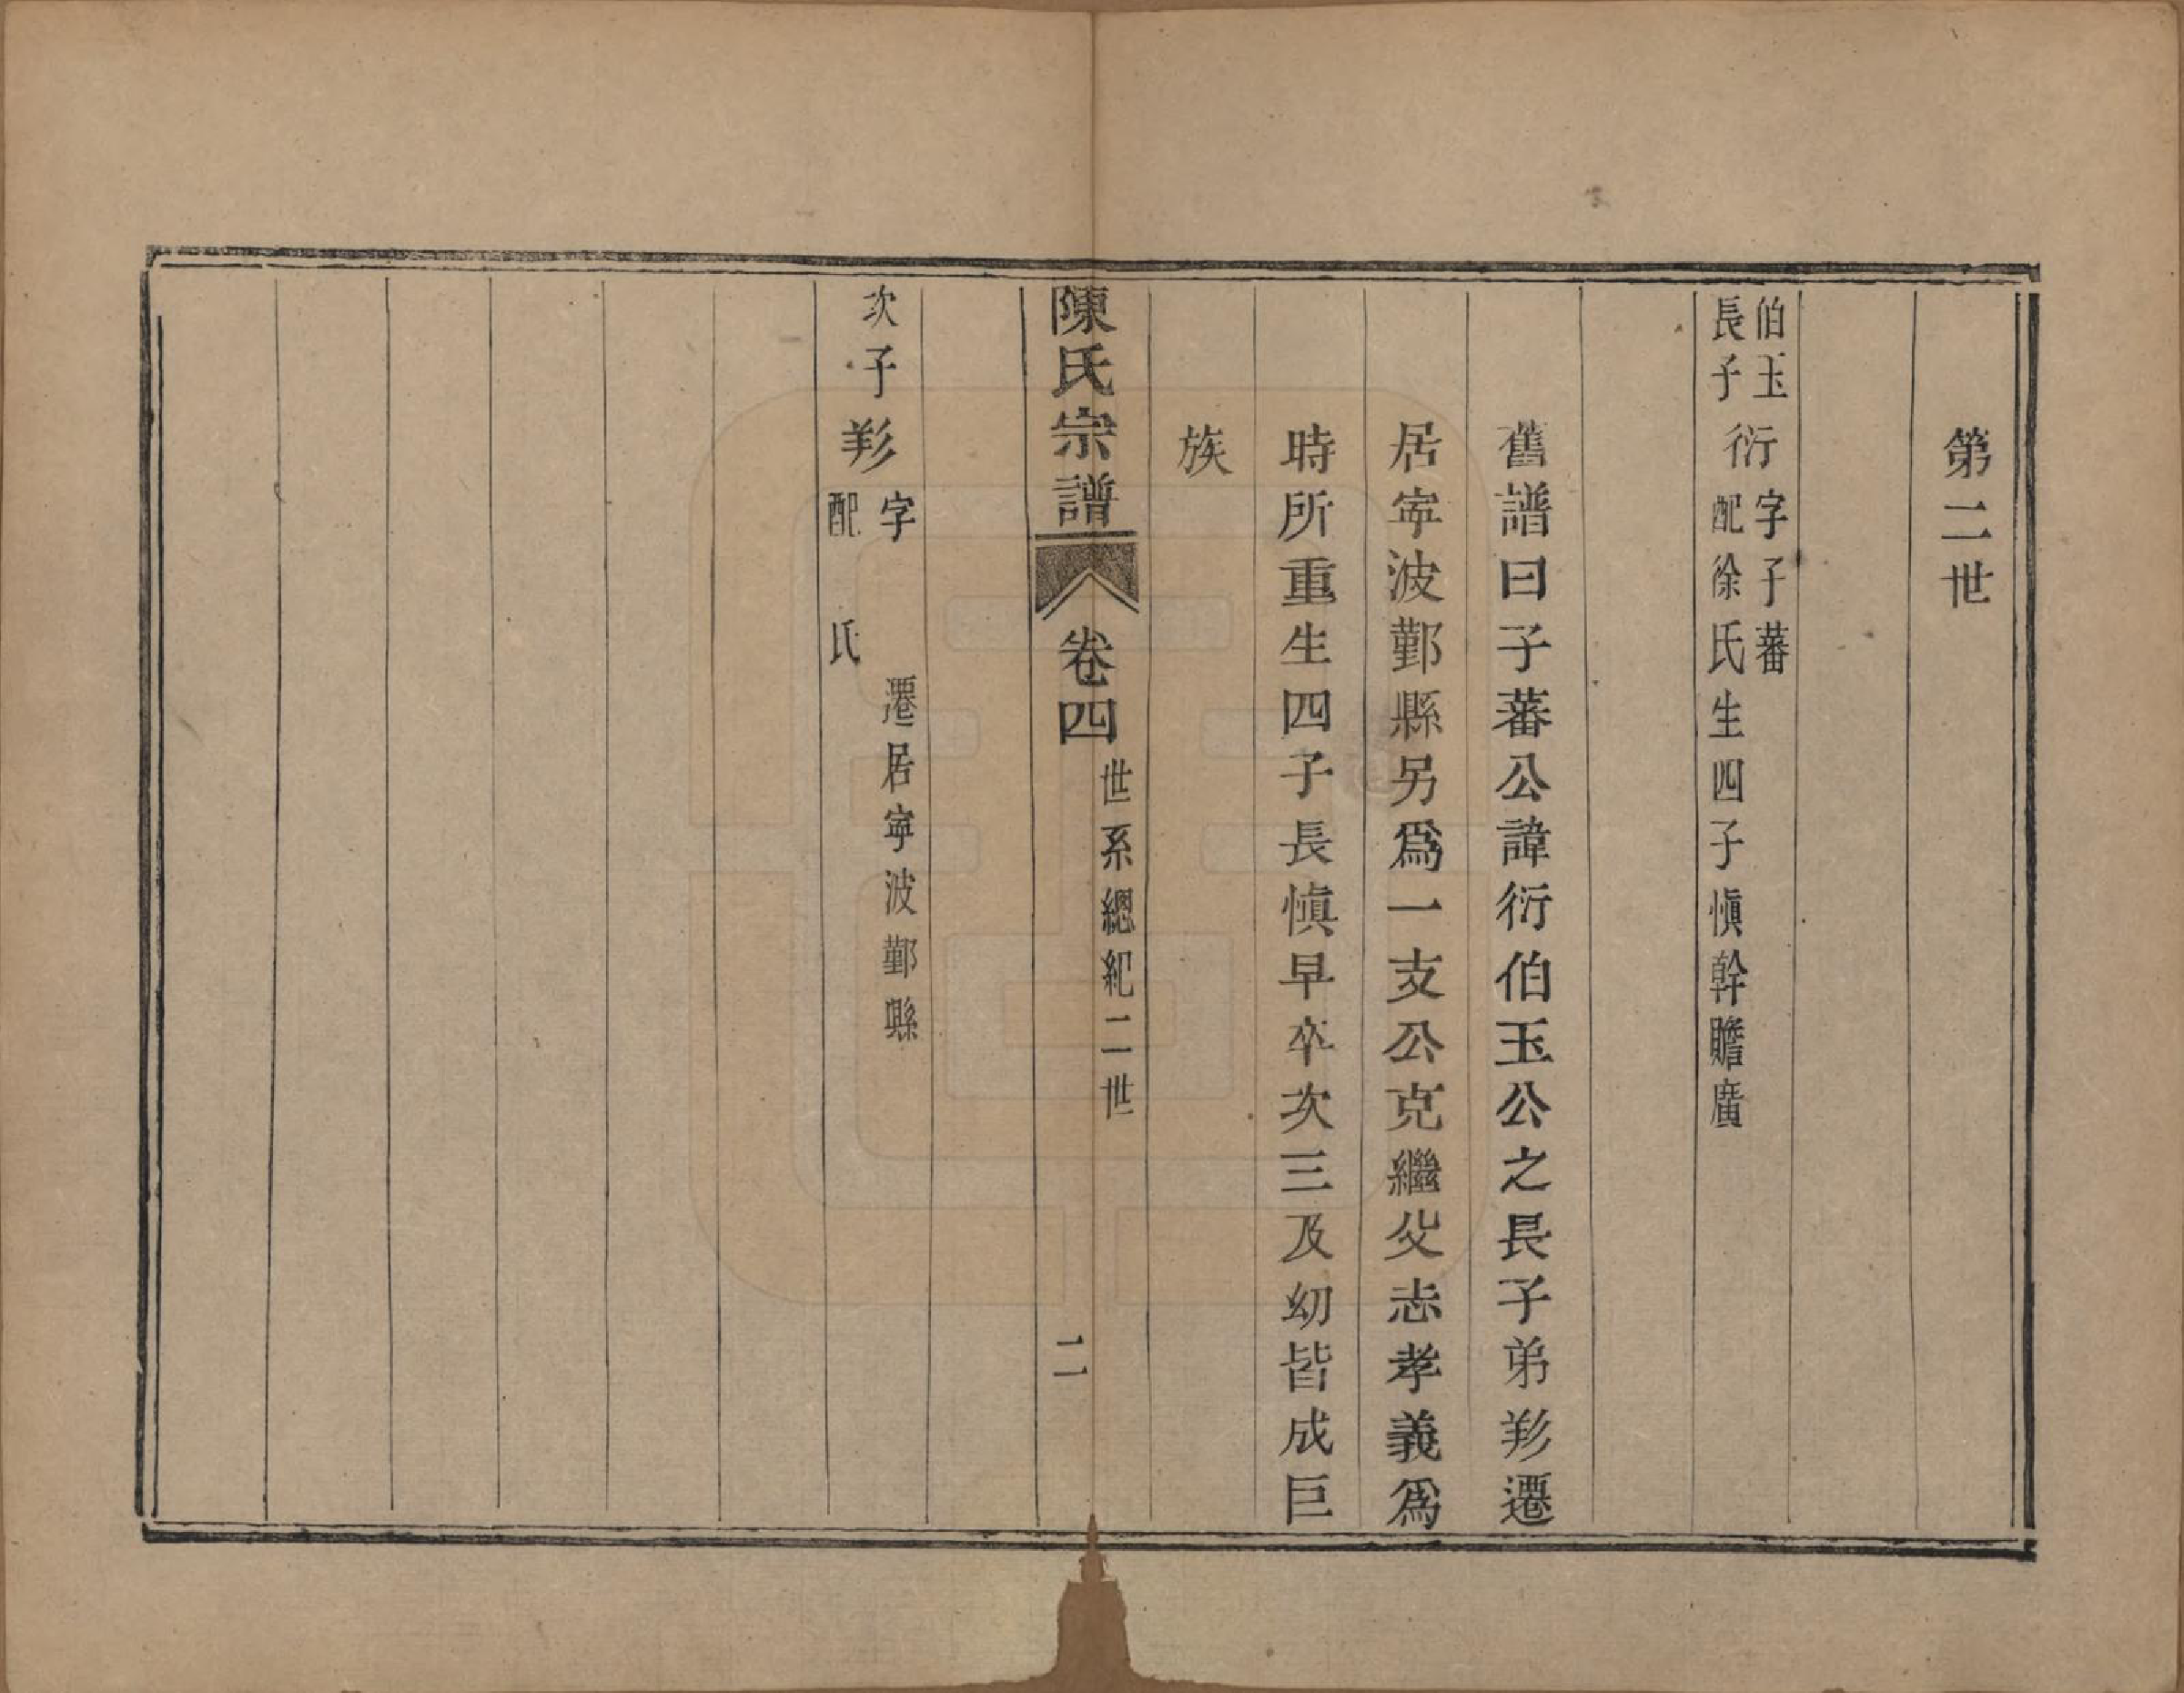 第二世
伯玉
長子
衍
字子蕃
配徐氏生四子愼幹贍廣
舊譜曰子蕃公諱衍伯玉公之長子弟羕遷
居寍波鄞縣另爲一支公克繼父志孝義爲
時所重生四子長愼早卒次三及幼皆成巨
族
陳氏宗譜
卷四
世系總紀二世
二
次子
字
遷居寍波鄞縣
配 氏